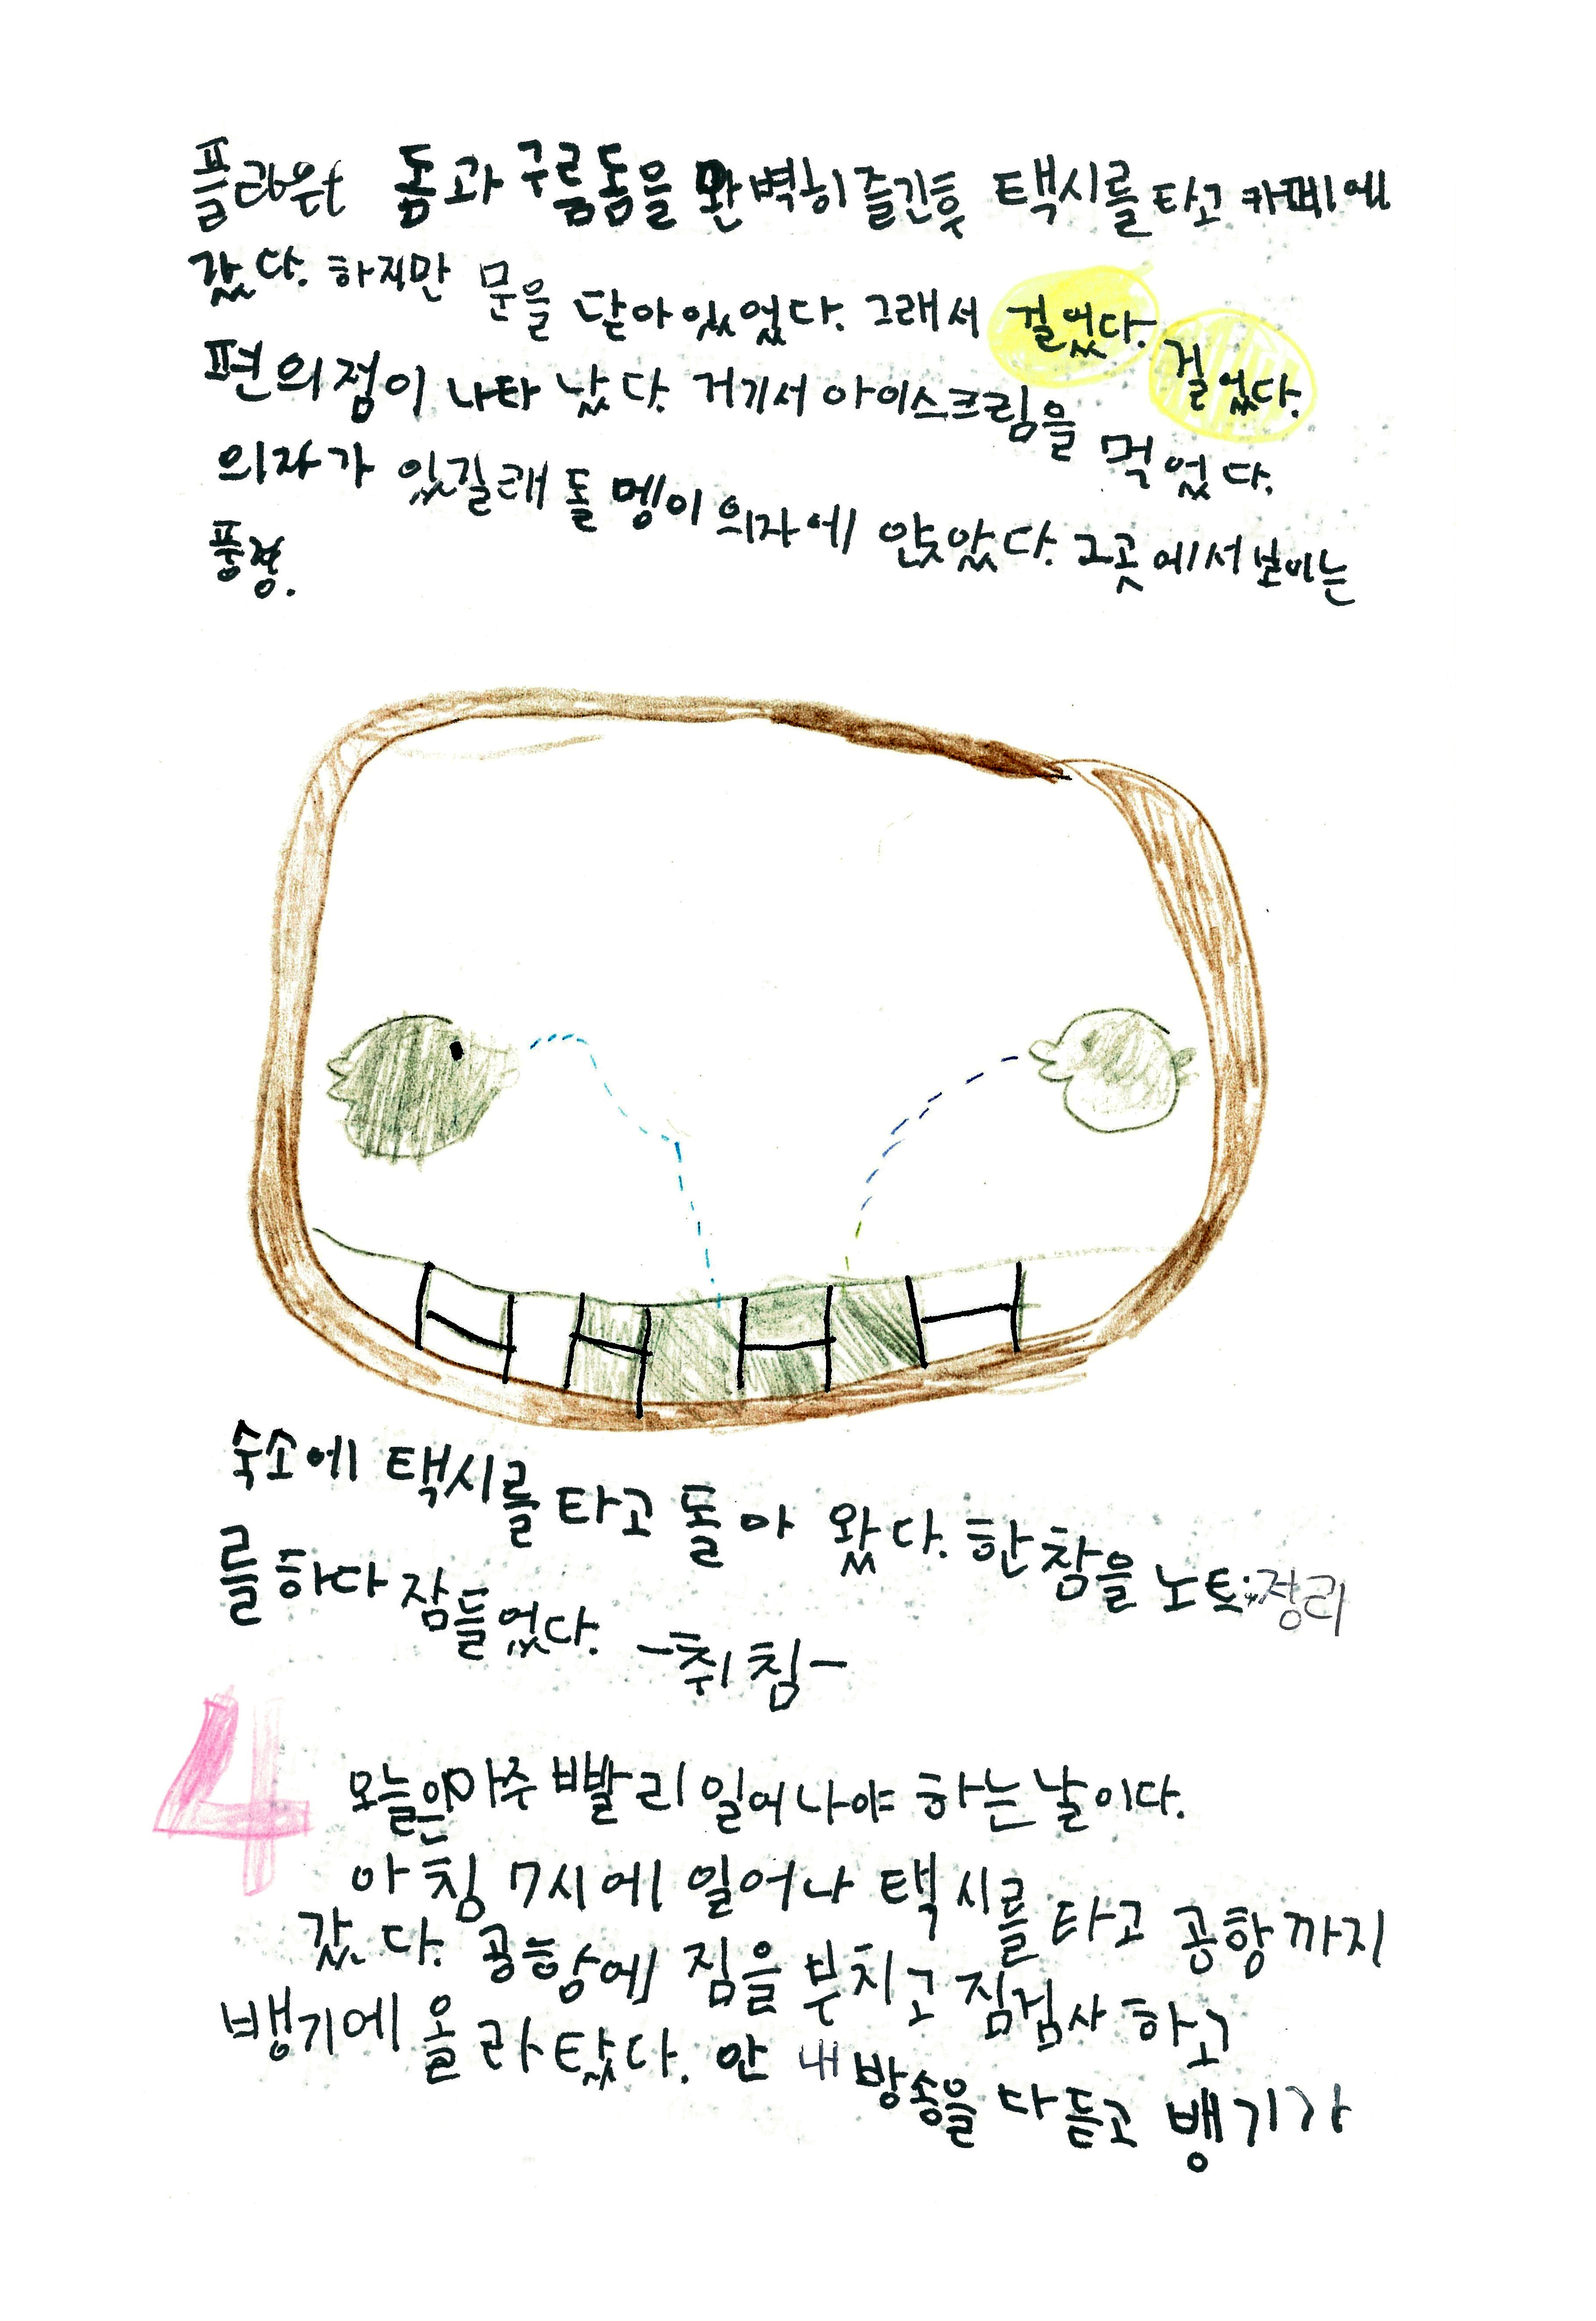 돔과 구름돔을 완벽히 즐긴후 택시를 타고 카페에
갔다. 하지만 문을 닫아 있었다. 그래서 걸었다. 걸었다.
편의점이 나타 났다. 거기서 아이스크림을 먹었다.
의자가 있길래 돌멩이 의자에 앉았다. 그곳에서 보이는
풍경.
숙소에 택시를 타고 돌아 왔다. 한참을 노트정리
를 하다 잠들었다. -취침-
4 오늘은 아주 빨리 일어나야 하는 날이다.
아침 7시에 일어나 택시를 타고 공항까지
갔다. 공항에 짐을 부치고 짐검사 하고
뱅기에 올라탔다. 안내방송을 다 듣고 뱅기가